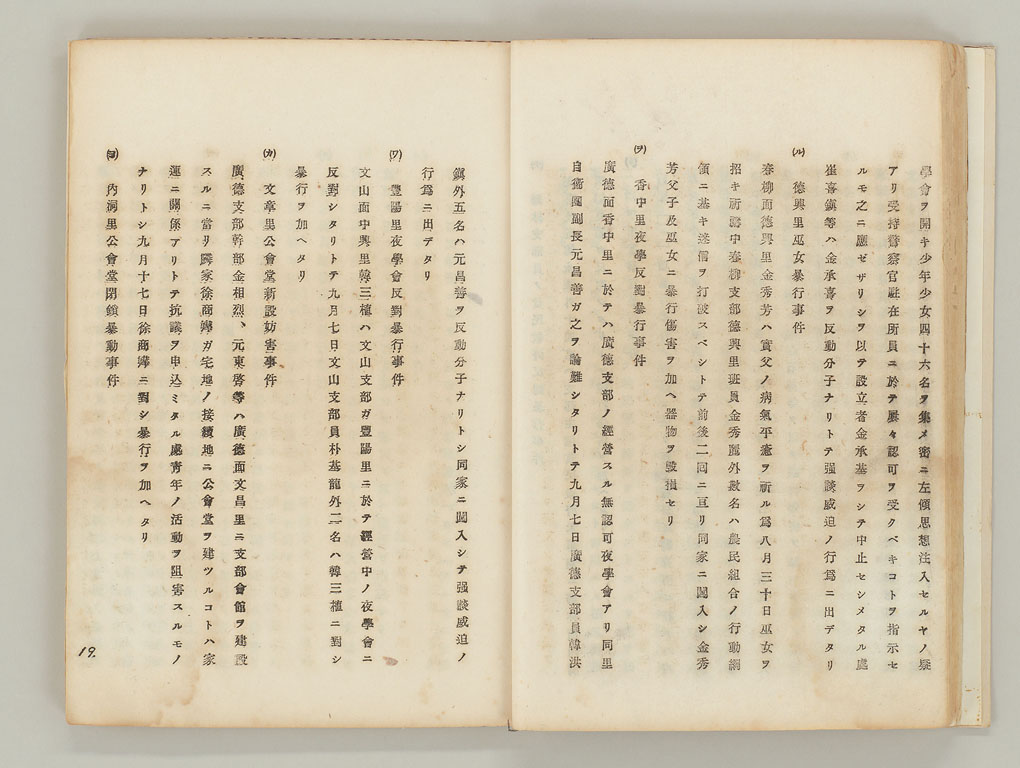 學會ヲ開キ少年少女四十六名ヲ集メ密ニ左傾思想注入セルヤノ疑
アリ受持警察官駐在所員ニ於テ屢々認可ヲ受クベキコトヲ指示セ
ルモ之ニ應ゼザリシヲ以テ設立者金承基ヲシテ中止セシメタル處
崔喜鎭等ハ金承喜ヲ反動分子ナリトテ强談威迫ノ行爲ニ出デタリ
(ル)
德興里巫女暴行事件
春柳面德興里金秀芳ハ實父ノ病氣平癒ヲ祈ル爲八月三十日巫女ヲ
招キ祈禱中春柳支部德興里班員金秀麗外數名ハ農民組合ノ行動綱
領ニ基キ迷信ヲ打破スベシトテ前後二回ニ亘リ同家ニ闖入シ金秀
芳父子及巫女ニ暴行傷害ヲ加ヘ器物ヲ毀損セリ
(ヲ)
香中里夜學反對暴行事件
廣德面香中里ニ於テハ廣德支部ノ經營スル無認可夜學會アリ同里
自衞團副長元昌善ガ之ヲ論難シタリトテ九月七日廣德支部員韓洪
鎭外五名ハ元昌善ヲ反動分子ナリトシ同家ニ闖入シテ强談威迫ノ
行爲ニ出デタリ
(ワ)
豐陽里夜學會反對暴行事件
文山面中興里韓三植ハ文山支部ガ豐陽里ニ於テ經營中ノ夜學會ニ
反對シタリトテ九月七日文山支部員朴基龍外二名ハ韓三植ニ對シ
暴行ヲ加ヘタリ
(カ)
文章里公會堂新設妨害事件
廣德支部幹部金相烈、元東啓等ハ廣德面文昌里ニ支部會館ヲ建設
スルニ當リ隣家徐商燁ガ宅地ノ接續地ニ公會堂ヲ建ツルコトハ家
運ニ關係アリトテ抗議ヲ申込ミタル處靑年ノ活動ヲ阻害スルモノ
ナリトシ九月十七日徐商燁ニ對シ暴行ヲ加ヘタリ
(ヨ)
內洞里公會堂閉鎖暴動事件
19.